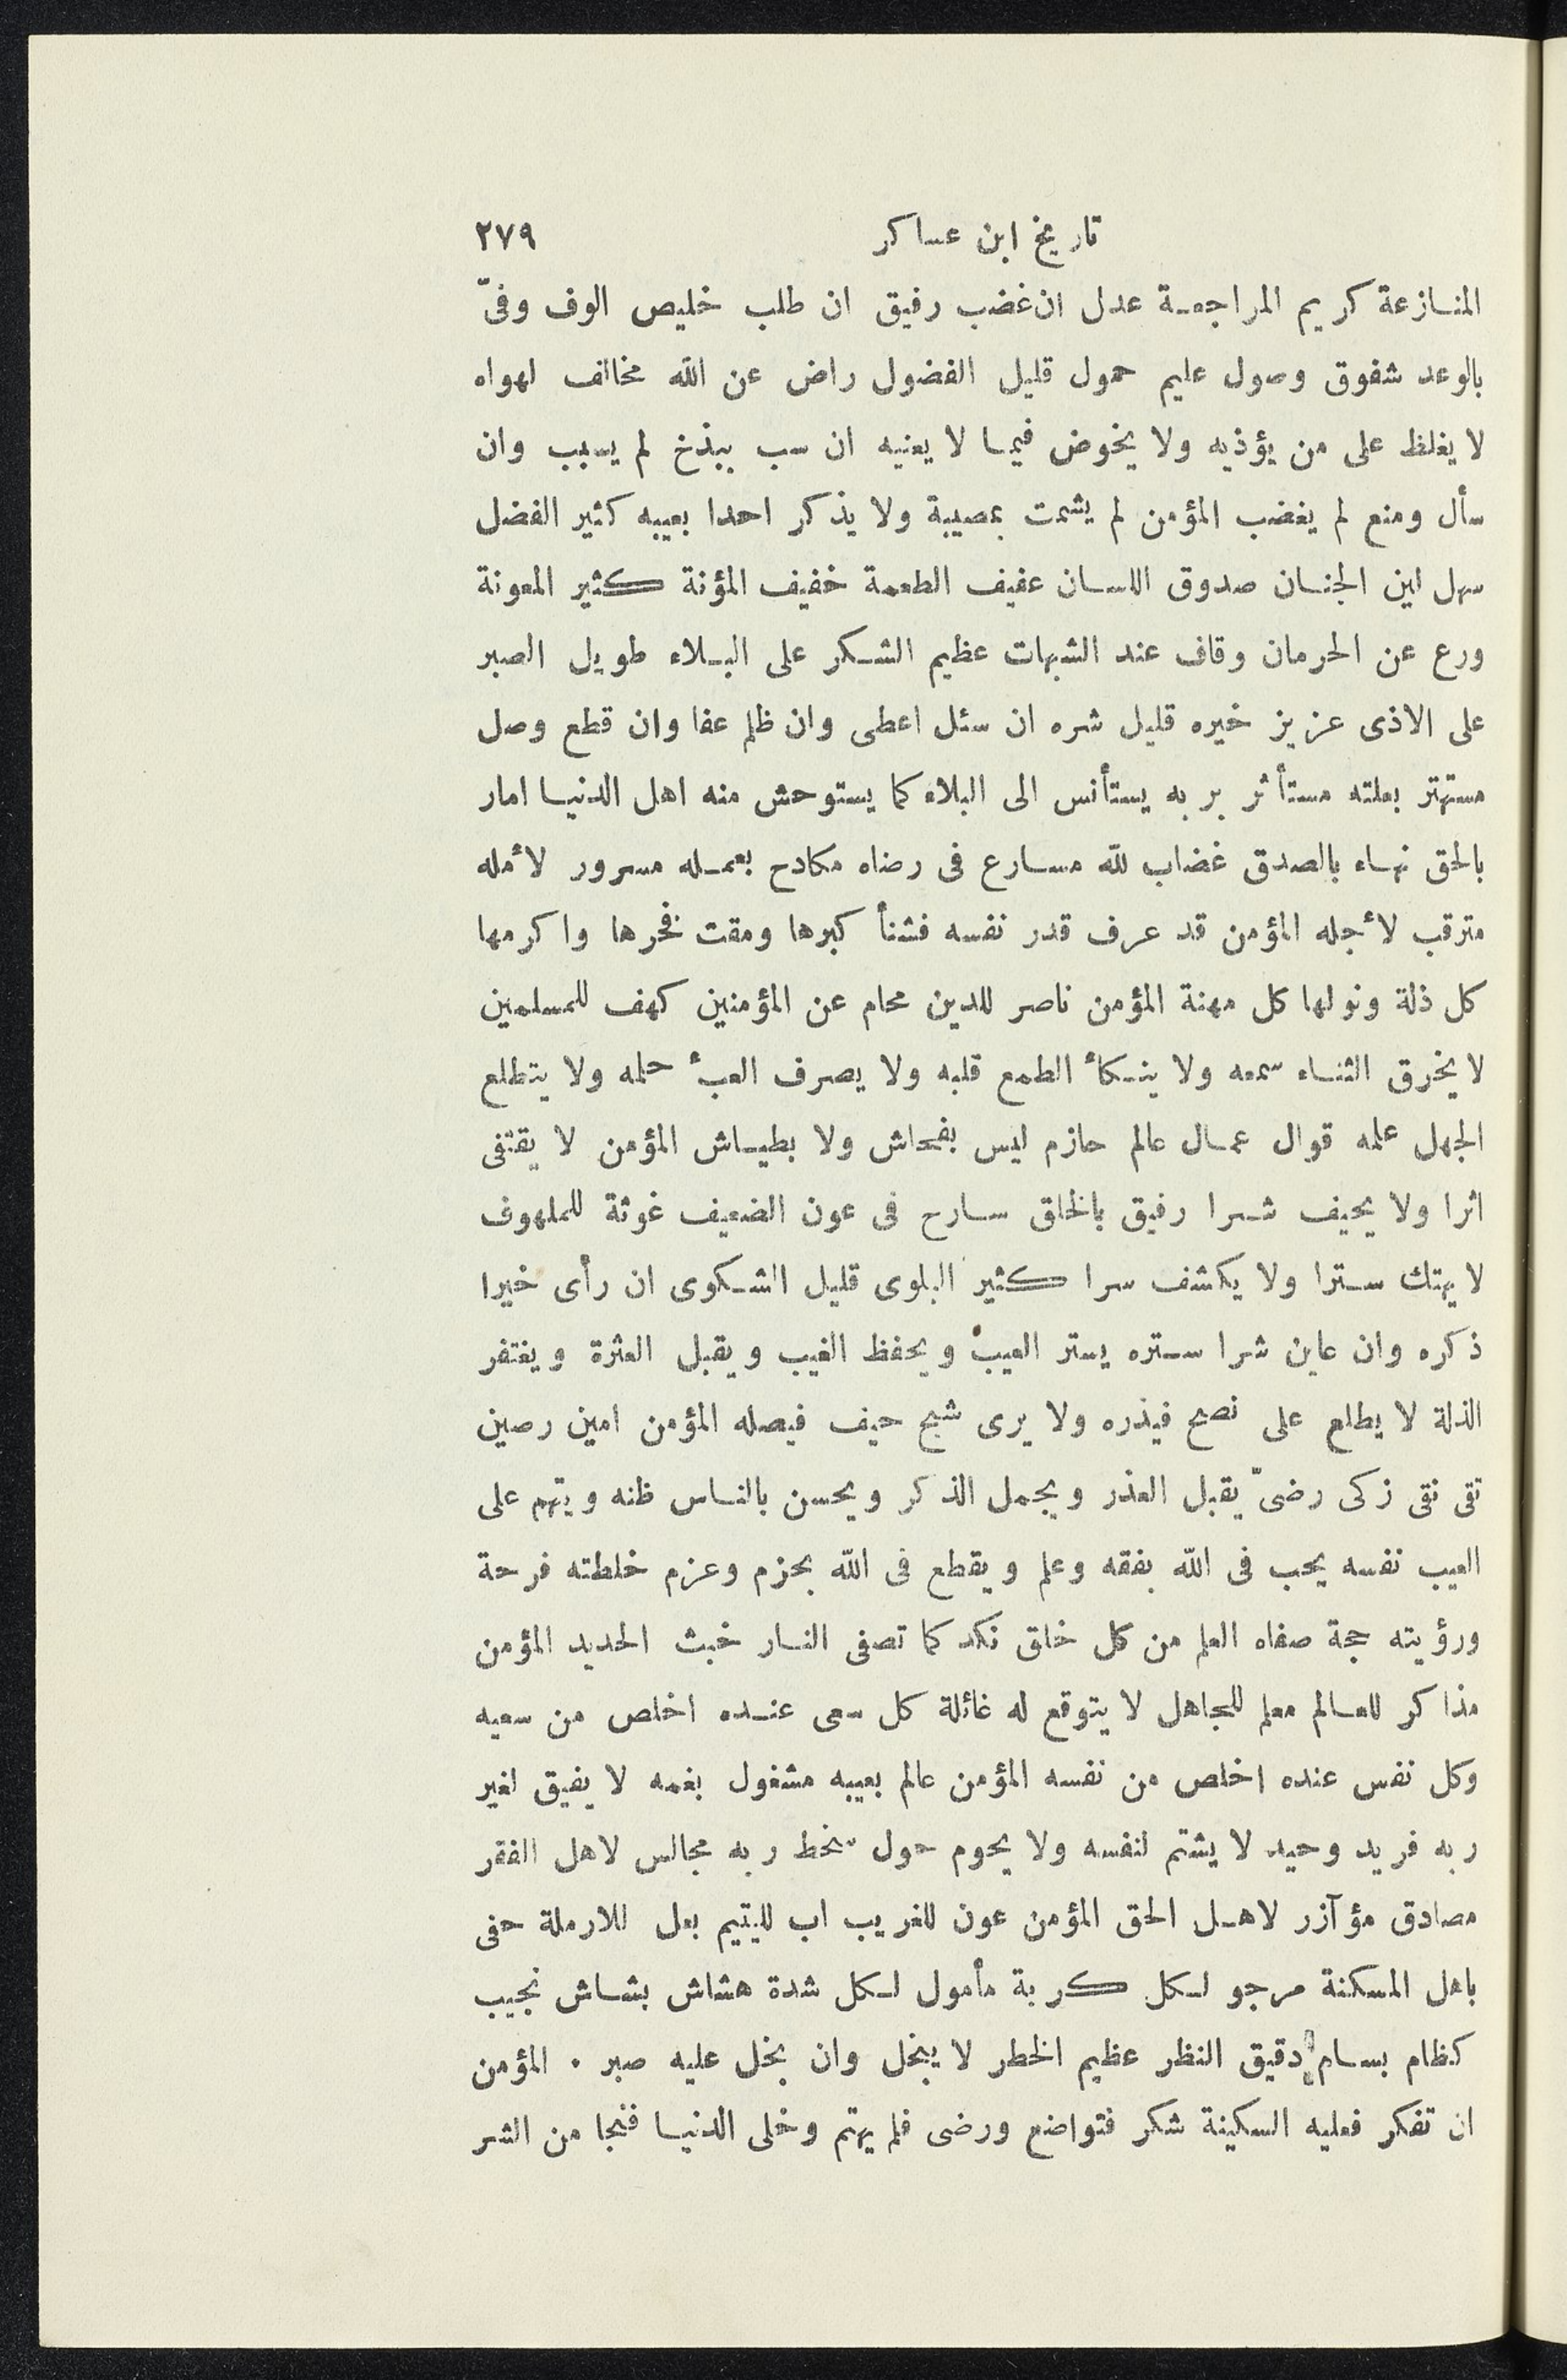 تاريخ ابن عساكر ٢٧٩
المنازعة كريم المراجعة عدل ان غضب رفيق ان طلب خليص الوف وفىّ
بالوعد شفوق وصول عليم حمول قليل الفضول راض عن الله مخالف لهواه
لا يغلظ على من يؤذيه ولا يخوض فيما لا يعنيه ان سب ببذخ لم يسبب وان
سأل ومنع لم يغضب المؤمن لم يشمت بمصيبة ولا يذكر احدا بعيبه كثير الفضل
سهل لين الجنان صدوق اللسان عفيف الطعمة خفيف المؤنة كثير المعونة
ورع عن الحرمان وقاف عند الشبهات عظيم الشكر على البلاء طويل الصبر
على الاذى عزيز خيره قليل شره ان سئل اعطى وان ظلم عفا وان قطع وصل
مستهتر بعلته مستأثر بربه يستأنس الى البلاء كما يستوحش منه اهل الدنيا امار
بالحق نهاء بالصدق غضاب لله مسارع فى رضاه مكادح بعمله مسرور لأمله
مترقب لأجله المؤمن قد عرف قدر نفسه فشنأ كبرها ومقت فخرها واكرمها
كل ذلة ونولها كل مهنة المؤمن ناصر للدين محام عن المؤمنين كهف للمسلمين
لا يخرق الثناء سمعه ولا ينكأ الطمع قلبه ولا يصرف العبأ حلمه ولا يتطلع
الجهل علمه قوال عمال عالم حازم ليس بفحاش ولا بطياش المؤمن لا يقتفى
اثرا ولا يحيف شرا رفيق بالخلق سارح فى عون الضعيف غوثة للملهوف
لا يهتك سترا ولا يكشف سرا كثير البلوى قليل الشكوى ان رأى خيرا
ذكره وان عاين شرا ستره يستر العيب ويحفظ الغيب ويقبل العثرة ويغتفر
الذلة لا يطلع على نصح فيذره ولا يرى شبح حيف فيصله المؤمن امين رصين
تقى نقى زكى رضىّ يقبل العذر ويجمل الذكر ويحسن بالناس ظنه ويتهم على
العيب نفسه يحب فى الله بفقه وعلم ويقطع فى الله بحزم وعزم خلطته فرحة
ورؤيته حجة صفاه العلم من كل خلق نكد كما تصفى النار خبث الحديد المؤمن
مذاكر للعالم معلم للجاهل لا يتوقع له غائلة كل سعى عنده اخلص من سعيه
وكل نفس عنده اخلص من نفسه المؤمن عالم بعيبه مشغول بغمه لا يفيق لغير
ربه فريد وحيد لا يشتم لنفسه ولا يحوم حول سخط ربه مجالس لاهل الفقر
مصادق مؤآزر لاهل الحق المؤمن عون للغريب اب لليتيم بعل للارملة حفى
باهل المسكنة مرجو لكل كربة مأمول لكل شدة هشاش بشاش نجيب
كظام بسام دقيق النظر عظيم الخطر لا يبخل وان بخل عليه صبر . المؤمن
ان تفكر فعليه السكينة شكر فتواضع ورضى فلم يهتم وخلى الدنيا فنجا من الشر